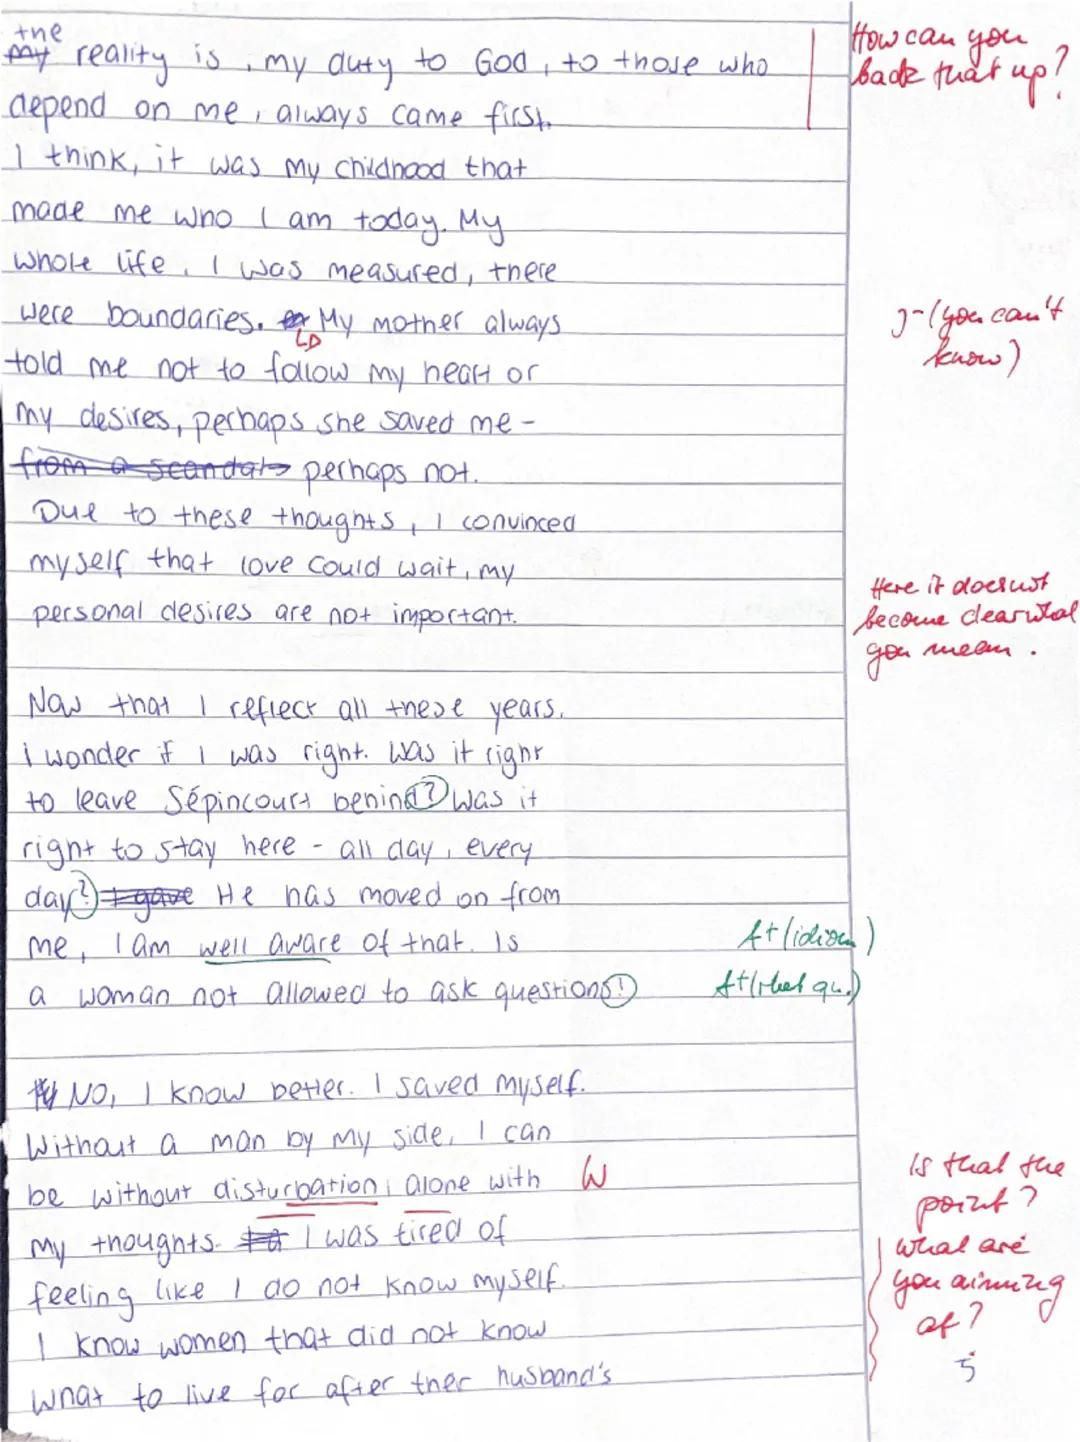 the How can you
my reality is, my duty to God, to those who back that up?
depend on me, always came first.
I think, it was my childhood that
made me who I am today. My
whole life, I was measured, there
were boundaries. My mother always J-(you can't
told me not to follow my heart or know)
my desires, perhaps she saved me -
from a scandal perhaps not.
Due to these thoughts, I convinced
myself that love could wait, my Here it does not
personal desires are not important. become clear what
you mean.
Now that I reflect all these years,
i wonder if I was right. Was it right
to leave Sépincourt behind? Was it
right to stay here - all day, every
day? I gave He has moved on from
me, I am well aware of that. Is A+(idiom)
a woman not allowed to ask questions! A+(rhet qu.)
No, I know better. I saved myself.
Without a man by my side, I can Is that the
be without disturbation, alone with W point?
my thoughts. I was tired of What are
feeling like I do not know myself. you aiming
I know women that did not know at?
what to live for after ther husband's 5